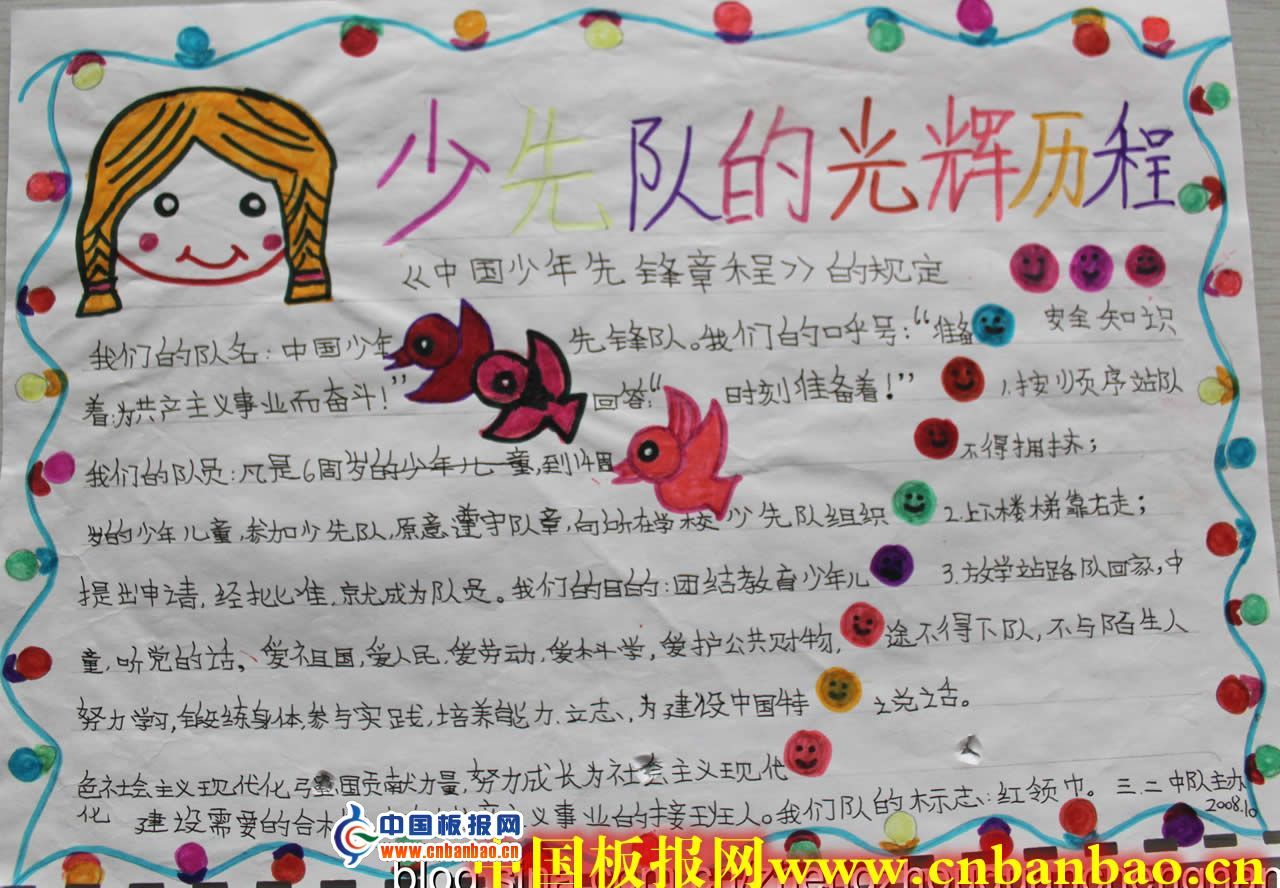 少先队的光辉历程
《中国少年先锋章程》的规定
我们的队名：中国少年先锋队。我们的口乎号：“准备
着：为共产主义事业而奋斗！” 回答：“时刻准备着！”
我们的队员：凡是6周岁的少年儿童，到14周
岁的少年儿童，参加少先队，原意遵守队章，向所在学校少先队组织
提出申请，经批准，就成为队员。我们的目的：团结教育少年儿
童，听党的话，爱祖国，爱人民，爱劳动，爱科学，爱护公共财物，
努力学习，锻练身体，参与实践，培养能力，立志，为建设中国特
色社会主义现代化强国贡献力量，努力成长为社会主义现代
化 建设需要的合格
主义事业的接班人。我们队的标志：红领巾。
安全知识
1.按顺序站队
不得拥挤；
2.上下楼梯靠右走；
3.放学站路队回家，中
途不得下队，不与陌生人
说话。
三.二中队主办
2008.10
中国板报网
www.cnbanbao.cn
中国板报网www.cnbanbao.cn